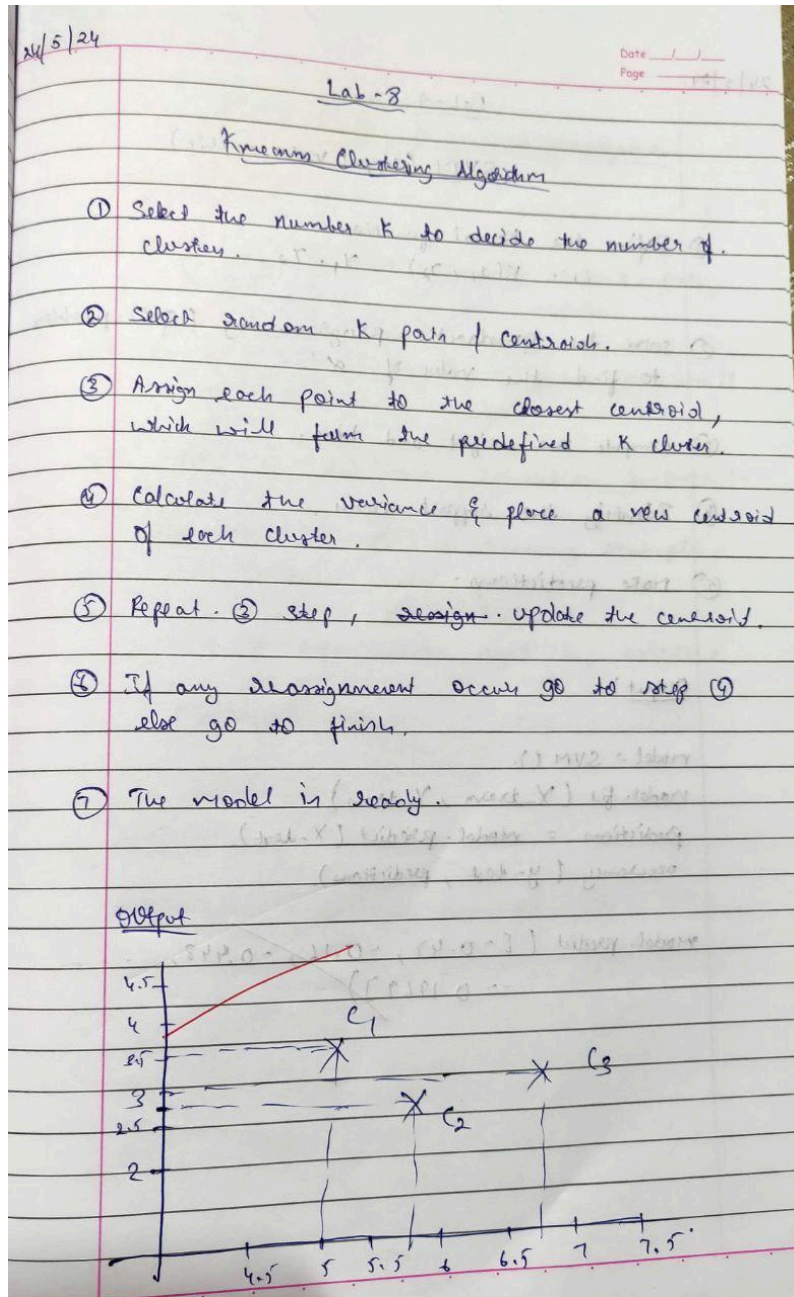 24/5/24
Date __/__/__
Page
Lab-8
Kmeans Clustering Algorithm
① Select the number K to decide the number of.
clusters.
② Select random K poin / centroids.
③ Assign each point to the closest centroid,
which will form the predefined K cluster.
④ Calculate the variance & place a new centroid
of each cluster.
⑤ Repeat. ③ step, reassign. update the centroid.
⑥ If any reassignment occurs go to step ④
else go to finish.
⑦ The model is ready.
Output
4.5
4
3.5
3
2.5
2
C1
C3
C2
4.5 5 5.5 6 6.5 7 7.5